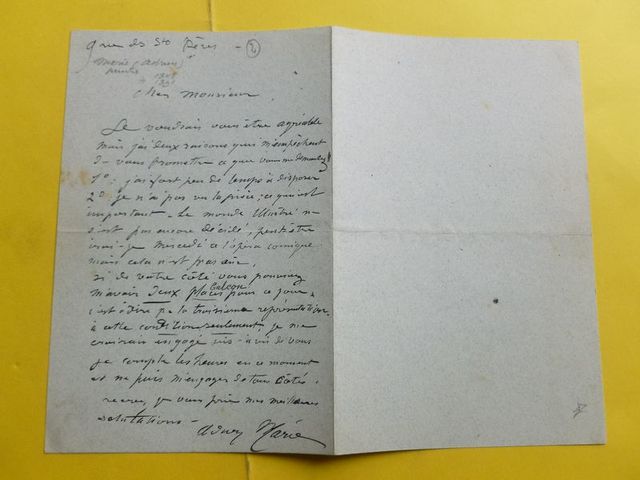 9 rue des Sts Pères - 2
Marie (Adrien)
peintre
Cher Monsieur,
Je voudrais vous être agréable
mais j'ai deux raisons qui m'empêchent
de vous promettre ce que vous me demandez
1º: j'ai fort peu de temps à disposer
2º je n'ai pas vu la pièce; ce qui est
important - Le monde illustré ne
s'est pas encore décidé, peut être
irai-je mercredi à l'opéra comique
mais cela n'est pas sûr,
si de votre côté vous pouviez
m'avoir deux places balcon pour ce jour,
c'est à dire pr la troisième représentation,
à cette condition seulement, je me
croirais engagé vis-à-vis de vous
je compte les heures en ce moment
et ne puis m'engager de tous côtés.
recevez, je vous prie mes meilleures
salutations -
Adrien Marie